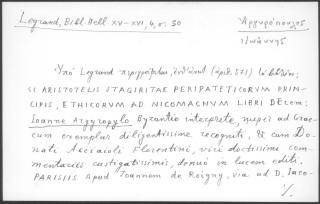 Legrand, Bibl. Hell. XV-XVI, 4, σ. 50
Ἀργυρόπουλος
Ἰωάννης
Ὑπὸ Legrand περιγράφεται
ARISTOTELIS STAGIRITAE PERIPATETICORUM PRIN-
CIPIS, ETHICORUM AD NICOMACHUM LIBRI DEcem:
Ioanne Argyropylo Byzantio interprete, nuper ad Grae-
cum exemplar diligentissime recogniti, & cum Do-
nati Acciaioli Florentini, viri doctissimi com-
mentariis castigatissimis, denuo in lucem editi.
PARISIIS Apud Joannem de Roigny, via ad D. Jaco-
./.